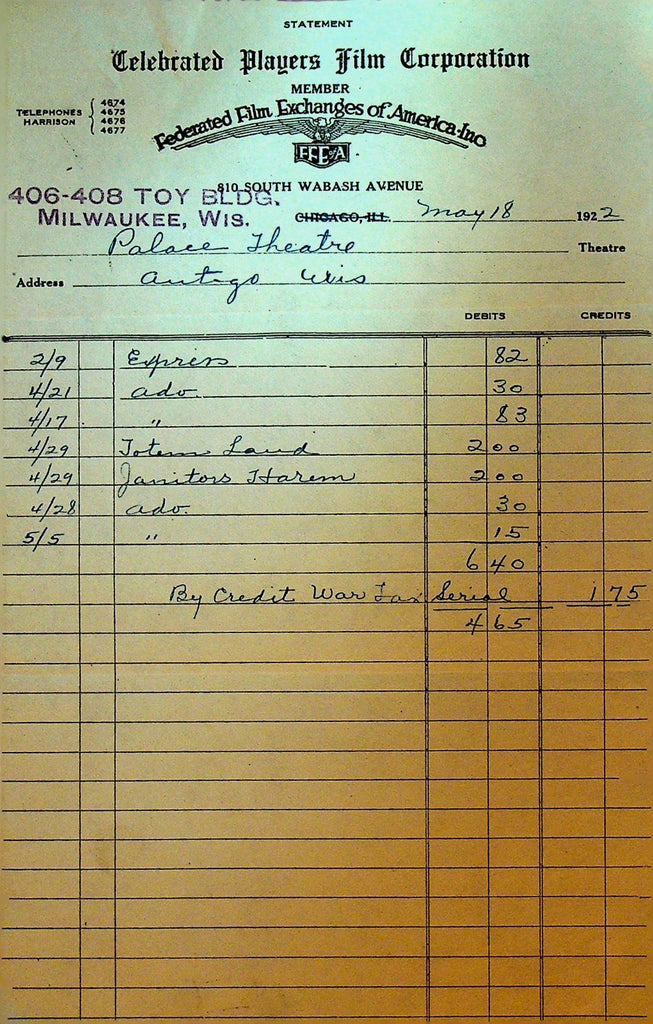 STATEMENT
Celebrated Players Film Corporation
MEMBER
TELEPHONES HARRISON { 4674 4675 4676 4677
Federated Film Exchanges of America-Inc
F.F.E.of A.
810 SOUTH WABASH AVENUE
406-408 TOY BLDG.
MILWAUKEE, WIS.
CHICAGO, ILL. May 18 1922
Palace Theatre Theatre
Address Antigo Wis
DEBITS CREDITS
2/9 Express 82
4/21 adv. 30
4/17 " 83
4/29 Totem Land 2 00
4/29 Janitors Harem 2 00
4/28 adv. 30
5/5 " 15
6 40
By Credit War Tax Serial 1 75
4 65